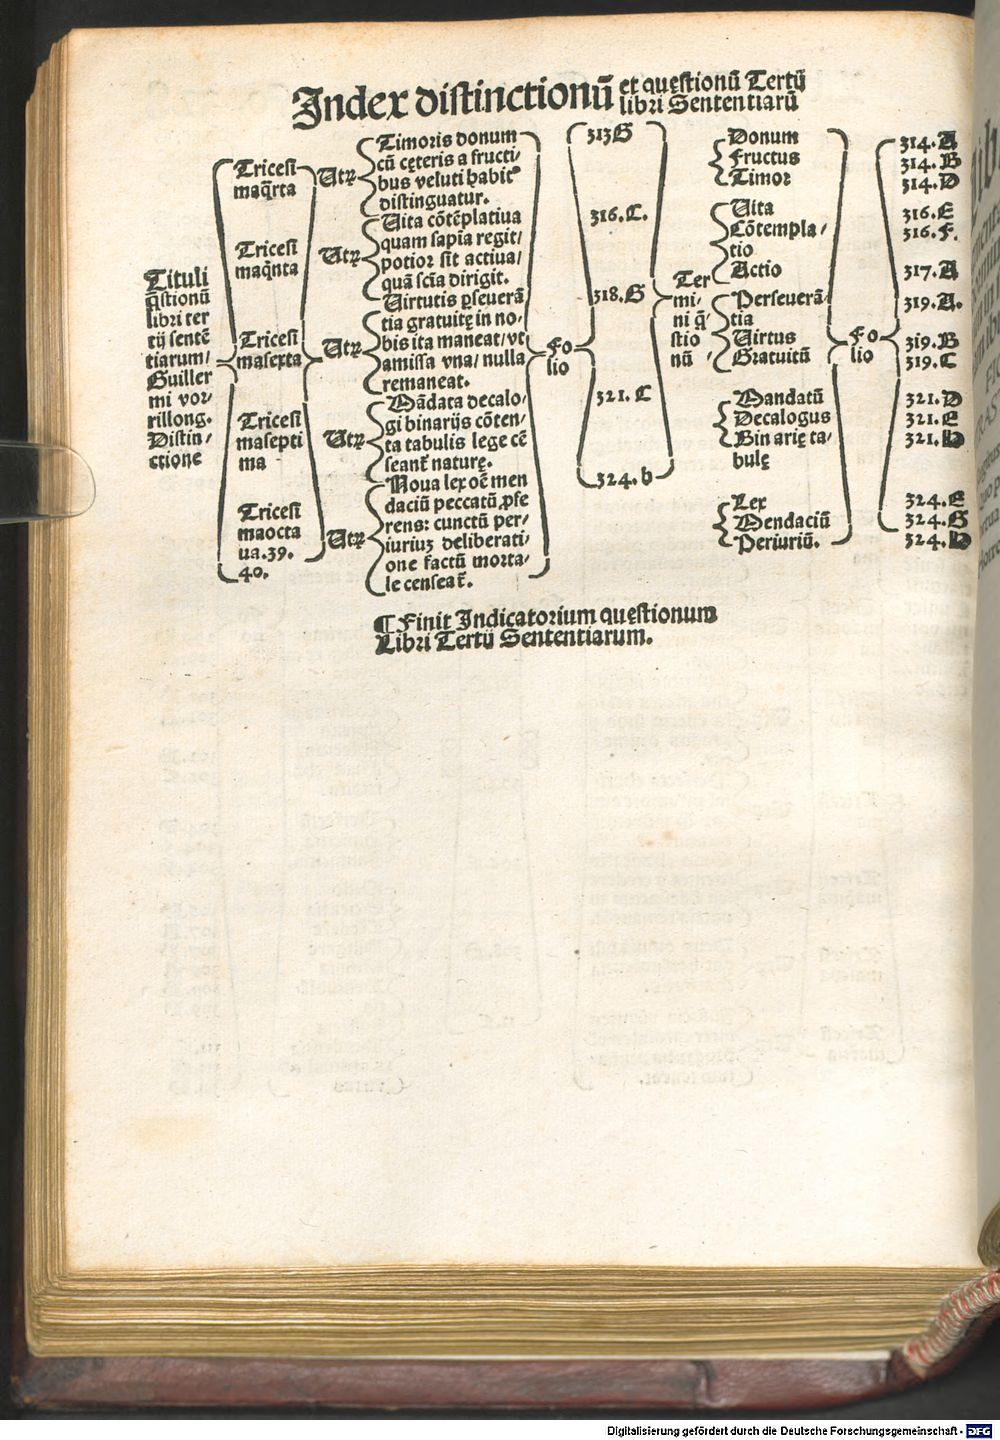 Index distinctionū et quęstionū Tertij
libri Sententiarū
Tituli
q̄stionū
libri ter
tij sentē
tiarum/
Guiller
mi vor-
rillong.
Distin-
ctione
Tricesi
maq̄rta
Tricesi
maq̄nta
Tricesi
masexta
Tricesi
masepti
ma
Tricesi
maocta
ua.39.
40.
Utꝝ
Timoris donum
cū cęteris a fructi-
bus veluti habitꝰ
distinguatur.
Utꝝ
Uita cōtēplatiua
quam sapīa regit/
potior sit actiua/
quā scīa dirigit.
Utꝝ
Uirtutis ꝑseuerā
tia gratuitę in no-
bis ita maneat/ vt
amissa vna/ nulla
remaneat.
Utꝝ
Mādata decalo-
gi binarijs cōten-
ta tabulis lege cē
seant̄ naturę.
Utꝝ
Noua lex oē men
daciū peccatū ꝓfe
rens: cunctū per-
iuriuꝫ deliberati-
one factū morta-
le censeat̄.
Fo
lio
313 G
316. C.
318. G
321. C
324. b
Ter
mi-
ni q̄-
stio
nū
Donum
Fructus
Timor
Uita
Cōtempla-
tio
Actio
Perseuerā-
tia
Uirtus
Gratuitū
Mandatū
Decalogus
Binarię ta-
bulę
Lex
Mendaciū
Periuriū.
Fo
lio
314. A
314. B
314. D
316. E
316. F.
317. A
319. A.
319. B
319. C
321. D
321. E
321. H
324. E
324. G
324. H
¶ Finit Indicatorium quęstionum
Libri Tertij Sententiarum.
Digitalisierung gefördert durch die Deutsche Forschungsgemeinschaft - DFG